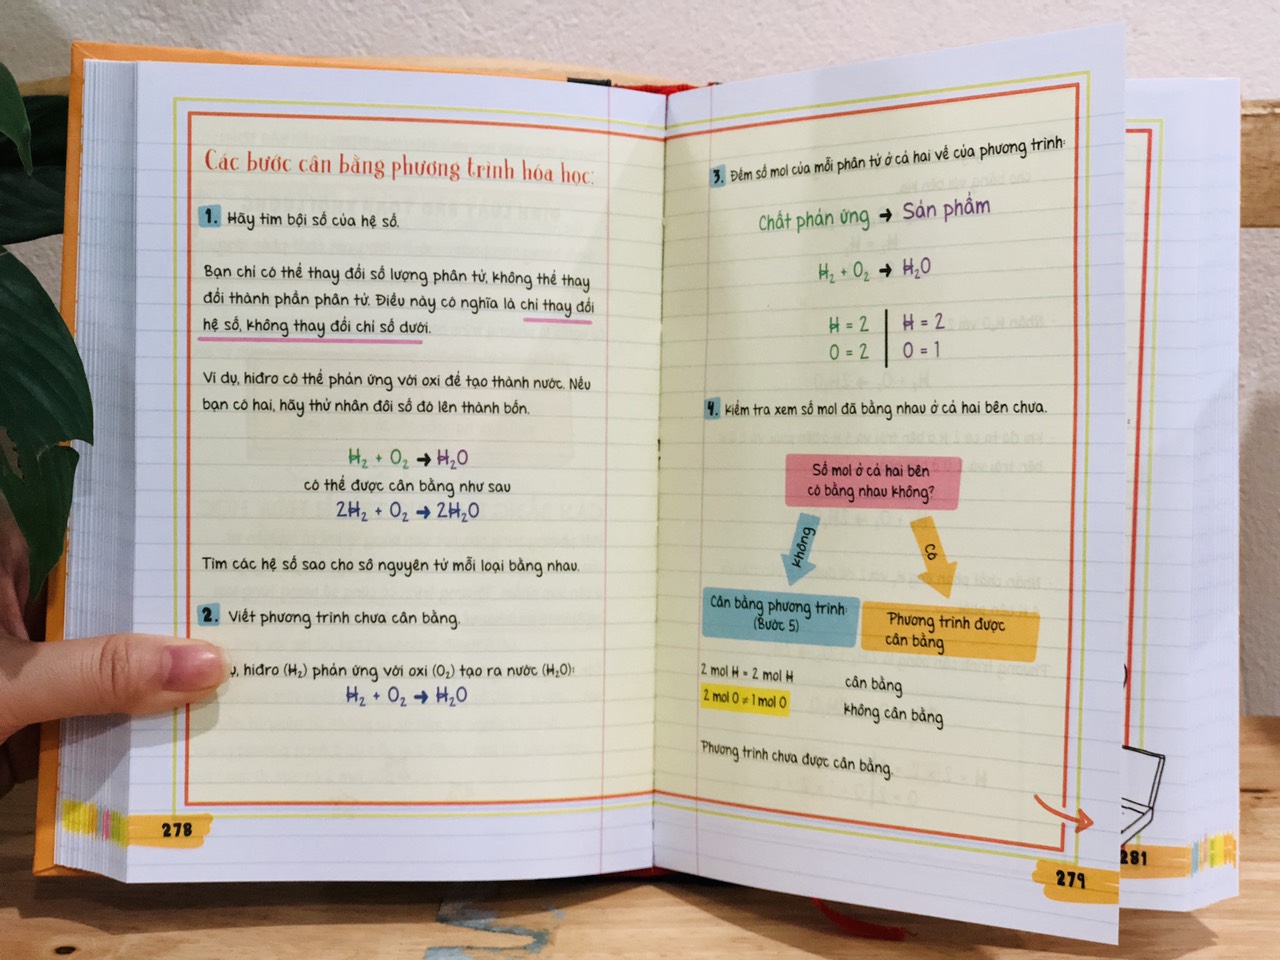 Các bước cân bằng phương trình hóa học:
1. Hãy tìm bội số của hệ số.
Bạn chỉ có thể thay đổi số lượng phân tử, không thể thay
đổi thành phần phân tử. Điều này có nghĩa là chỉ thay đổi
hệ số, không thay đổi chỉ số dưới.
Ví dụ, hiđro có thể phản ứng với oxi để tạo thành nước. Nếu
bạn có hai, hãy thử nhân đôi số đó lên thành bốn.
H₂ + O₂ → H₂O
có thể được cân bằng như sau
2H₂ + O₂ → 2H₂O
Tìm các hệ số sao cho số nguyên tử mỗi loại bằng nhau.
2. Viết phương trình chưa cân bằng.
, hiđro (H₂) phản ứng với oxi (O₂) tạo ra nước (H₂O):
H₂ + O₂ → H₂O
278
3. Đếm số mol của mỗi phân tử ở cả hai vế của phương trình:
Chất phản ứng → Sản phẩm
H₂ + O₂ → H₂O
H = 2 H = 2
O = 2 O = 1
4. Kiểm tra xem số mol đã bằng nhau ở cả hai bên chưa.
Số mol ở cả hai bên
có bằng nhau không?
Không
Có
Cân bằng phương trình
(Bước 5)
Phương trình được
cân bằng
2 mol H = 2 mol H cân bằng
2 mol O ≠ 1 mol O không cân bằng
Phương trình chưa được cân bằng.
279
281